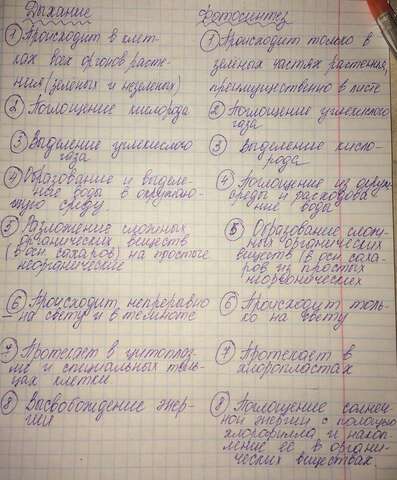 Дыхание
① Происходит в клет-
ках всех органов расте-
ния (зеленых и незеленых)
② Поглощение кислорода
③ Выделение углекислого
газа
④ Образование и выделе-
ние воды в окружаю-
щую среду
⑤ Разложение сложных
органических веществ
(в осн. сахаров) на простые
неорганические
⑥ Происходит непрерывно
на свету и в темноте
⑦ Протекает в цитоплаз-
ме и специальных тель-
цах клетки
⑧ Высвобождение энер-
гии
Фотосинтез
① Происходит только в
зеленых частях растения,
преимущественно в листе
② Поглощение углекислого
газа
③ Выделение кисло-
рода
④ Поглощение из окруж.
среды и расходова
ние воды
⑤ Образование слож-
ных органических
веществ (в осн. саха-
ров из простых
неорганических
⑥ Происходит толь-
ко на свету
⑦ Протекает в
хлоропластах
⑧ Поглощение солнеч-
ной энергии с помощью
хлорофилла и накоп-
ление её в органи-
ческих веществах